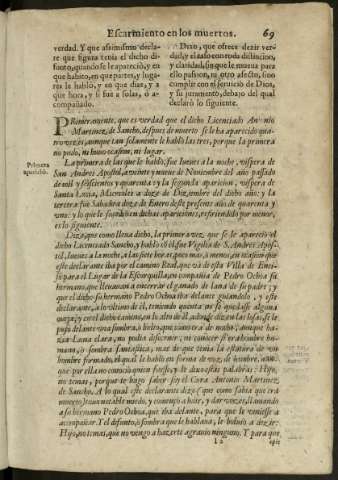 Escarmiento en los muertos. 69
verdad. Y que assimismo decla-
re que figura tenia el dicho di-
funto, quando se le apareció, y en
que habito, en que partes, y luga-
res le habló, y en que dias, y a
que hora, y si fue a solas, ò a-
compañado.
Dixo, que ofrece dezir ver-
dad, y el caso con toda distincion,
y claridad, sin que le mueva para
ello passion, ni otro afecto, sino
cumplir con el servicio de Dios,
y su juramento, debajo del qual
declarò lo siguiente.
PRimeramente, que es verdad que el dicho Licenciado Antonio
Martinez, de Sancho, despues de muerto se le ha aparecido qua-
tro vezes, aunque tan solamente le habló las tres, porque la primera
no pudo, ni huvo ocasion, ni lugar.
Primera
aparició.
La primera de las que le hablò, fue lunes a la noche, vispera de
San Andres Apostol, a veinte y nueve de Noviembre del año passado
de mil y seiscientos y quarenta y la segunda aparicion, vispera de
Santa Lucia, Miercoles a doze de Diziembre del dicho año; y la
tercera fue Sabado a doze de Enero deste presente año de quarenta y
uno: y lo que le sucediò en dichas apariciones, refiriendolo por menor,
es lo siguiente.
Dize, que como lleva dicho, la primera vez que se le apareciò el
dicho Licenciado Sancho, y hablò à él, fue Vigilia de S. Andres Apos-
tol, lunes a la noche, a las siete horas, poco mas, ò menos, en ocasion que
este declarante iba por el camino Real, que và de esta Villa de
para el Lugar de la Escorquilla, en compañia de Pedro Ochoa su
hermano, que llevavan a encerrar el ganado de lana de su padre; y
que el dicho su hermano Pedro Ochoa iba delante guiandolo, y este
declarante, a lo ultimo de él, teniendo quenta no se quedasse alguna
oveja; y en el dicho camino, en lo alto de él, a donde dizen las losas, se le
puso delante una sombra, ò bulto, que viniera de noche; aunque ha-
zia Luna clara, no podia discernir, ni conocer si era hombre hu-
mano, ò sombra fantastica, mas de que tenia la estatura de un
hombre formado, el qual le hablò en forma de voz de hombre, aun-
que por ella no conociò quien fuesse, y le dixo estas palabras: Hijo,
no temas, porque te hago saber soy el Cura Antonio Martinez
de Sancho. A lo qual este declarante dize (que como sabia que era
muerto) tomò notable miedo, y començò a huir, y dar vozes, llamando
a su hermano Pedro Ochoa, que iba delante, para que le viniesse a
acompañar. Y el difunto, ò sombra que le hablava, le bolviò a dezir:
Hijo, no temas, que no vengo a hazerte agravio ninguno. Y para que
I 2 este